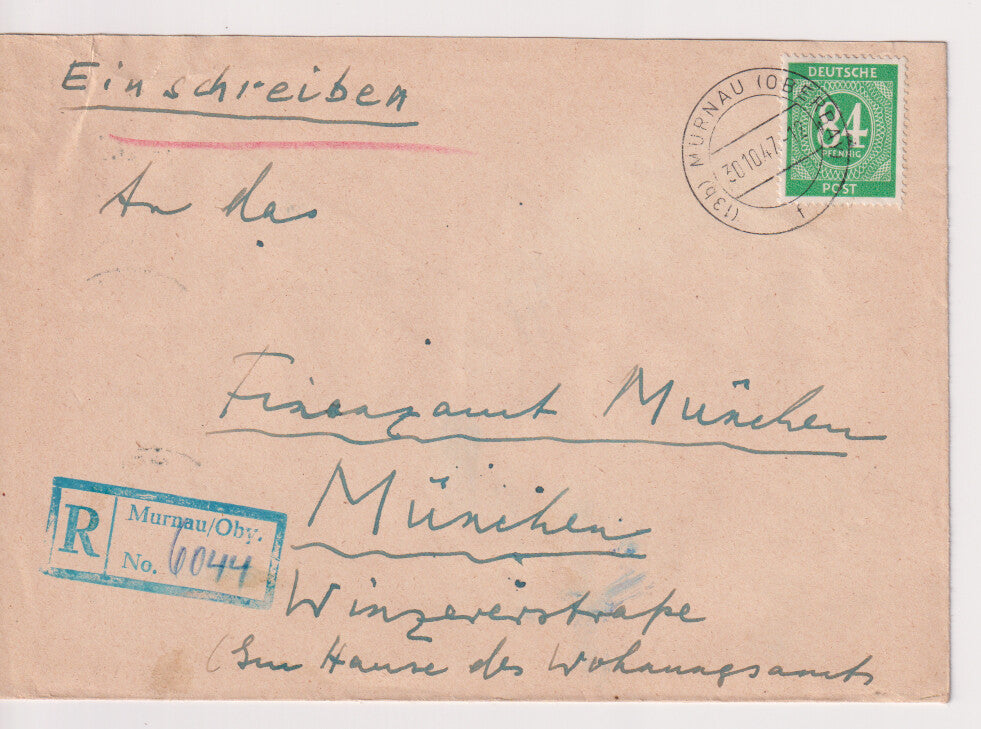 Einschreiben
DEUTSCHE
84
PFENNIG
POST
(13b) MURNAU (OBERBAY
30.10.47.-18
f
An das
Finanzamt München
München
Winzererstraße
(Im Hause des Wohnungsamts
R
Murnau/Oby.
No. 6044